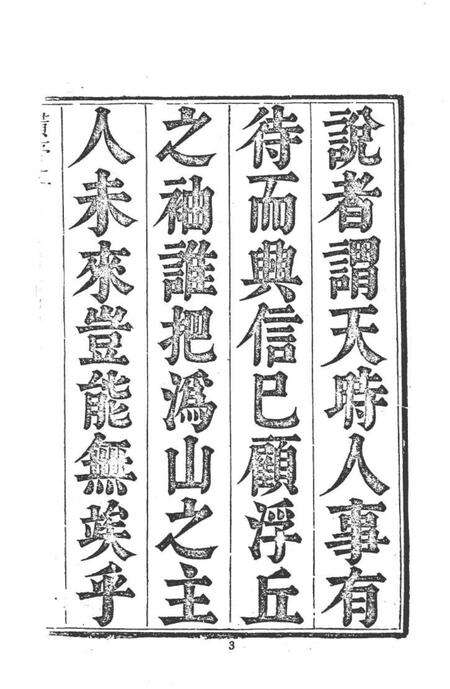 說者謂天時人事有
待而興信已顧浮丘
之袖誰把潙山之主
人未來豈能無竢乎
3